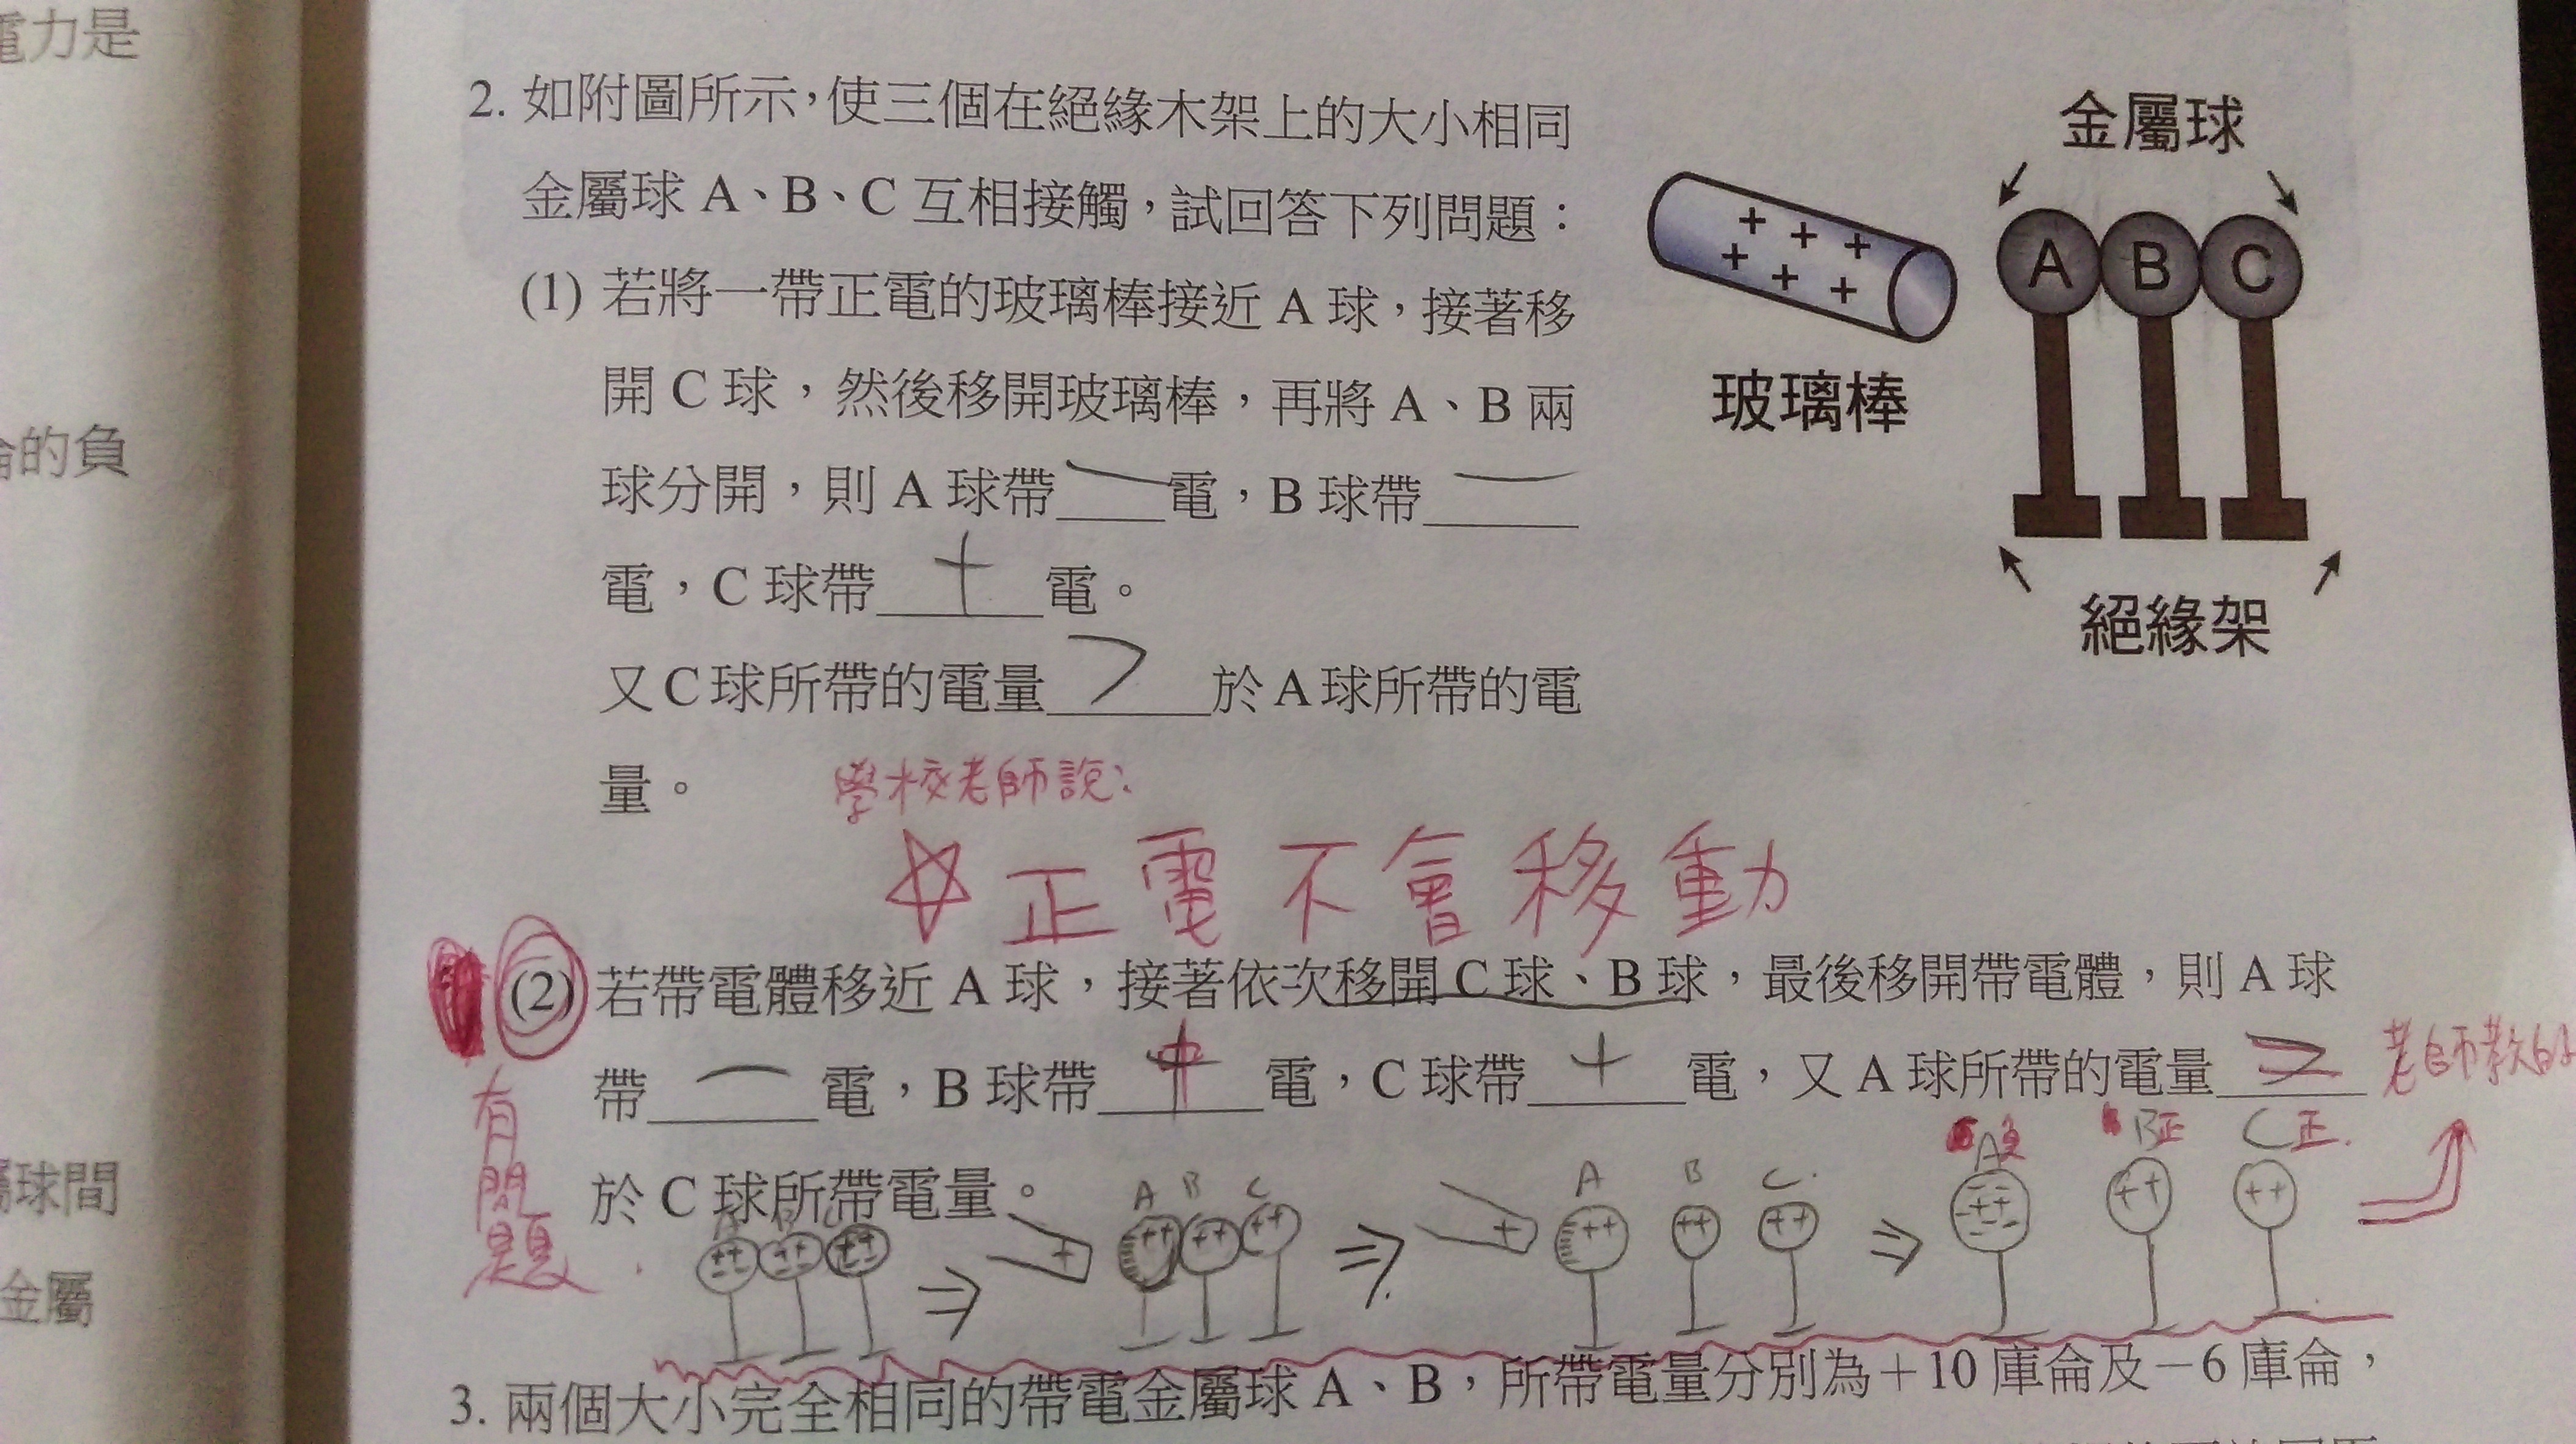 電力是
的負
球間
金屬
2. 如附圖所示，使三個在絕緣木架上的大小相同
金屬球 A、B、C 互相接觸，試回答下列問題：
(1) 若將一帶正電的玻璃棒接近 A 球，接著移
開 C 球，然後移開玻璃棒，再將 A、B 兩
球分開，則 A 球帶 － 電，B 球帶 －
電，C 球帶 ＋ 電。
又 C 球所帶的電量 > 於 A 球所帶的電
量。
金屬球
A B C
+ + + + + +
玻璃棒
絕緣架
學校老師說：
☆正電不會移動
(2) 若帶電體移近 A 球，接著依次移開 C 球、B 球，最後移開帶電體，則 A 球
帶 － 電，B 球帶 ＋ 電，C 球帶 ＋ 電，又 A 球所帶的電量 > 老師教的
於 C 球所帶電量。
有問題
A B C
A B C
A B C
A負 B正 C正
3. 兩個大小完全相同的帶電金屬球 A、B，所帶電量分別為＋10 庫侖及－6 庫侖，